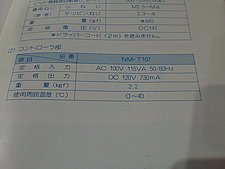 ねじ M2.5~M4
タッピンねじ 2.3~4
重 量 (gf) *940
定 格 電 圧 (V) DC141
*ドライバーコード(2m)を含みません。
(2) コントローラ部
項目 品番 NM-T107
定 格 入 力 AC 100V 115VA 50/60Hz
定 格 出 力 DC 120V 730mA
重 量 (kgf) 2.2
使用周囲温度 (℃) 0~40